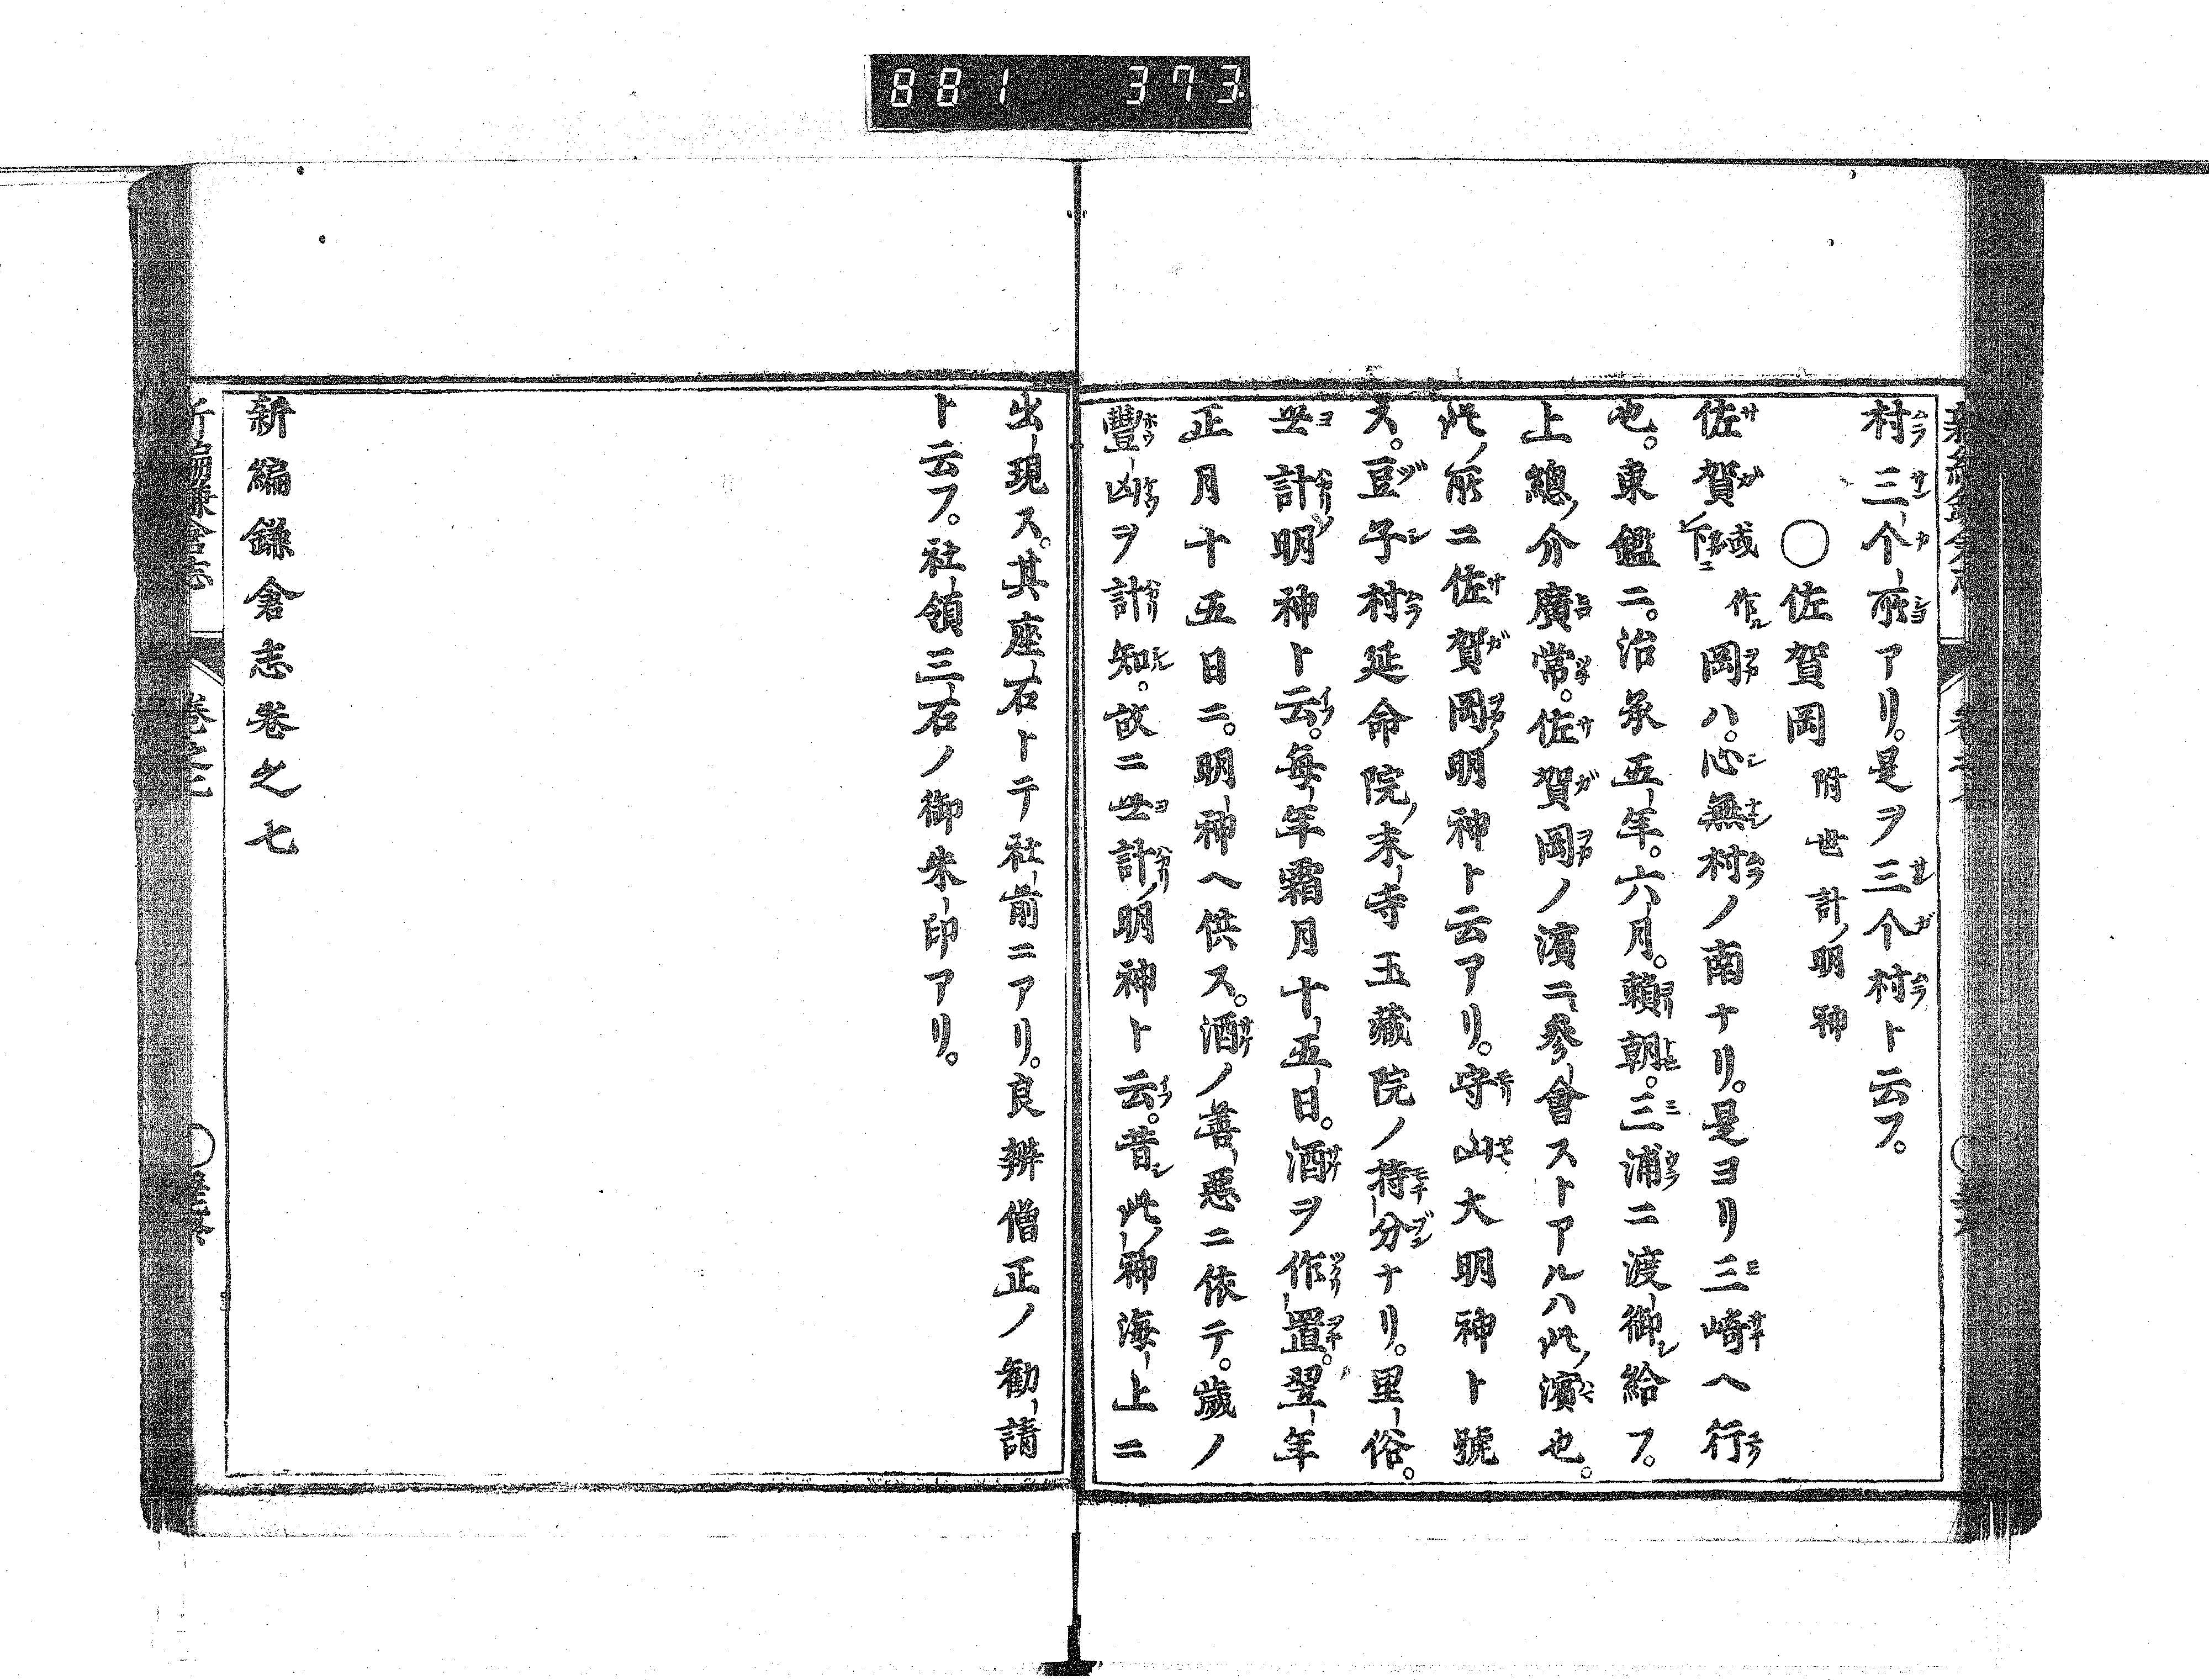 881 373
村三个所アリ。是ヲ三个村ト云フ。
〇佐賀岡 附世計明神
佐賀或作下岡ハ。心無村ノ南ナリ。是ヨリ三崎ヘ行
也。東鑑ニ。治承五年。六月。賴朝。三浦ニ渡御シ給フ。
上總ノ介廣常。佐賀岡ノ濱ニ參會ストアルハ此ノ濱也。
此ノ所ニ佐賀岡ノ明神ト云アリ。守山大明神ト號
ス。豆子村延命院ノ末寺玉藏院ノ持分ナリ。里俗。
世計明神ト云。每年霜月十五日。酒ヲ作置。翌年
正月十五日ニ。明神ヘ供ス。酒ノ善惡ニ依テ。歲ノ
豐凶ヲ計知。故ニ世計ノ明神ト云。昔シ此ノ神海上ニ
出現ス。其座石トテ社前ニアリ。良辨僧正ノ勸請
ト云フ。社領三石ノ御朱印アリ。
新編鎌倉志卷之七